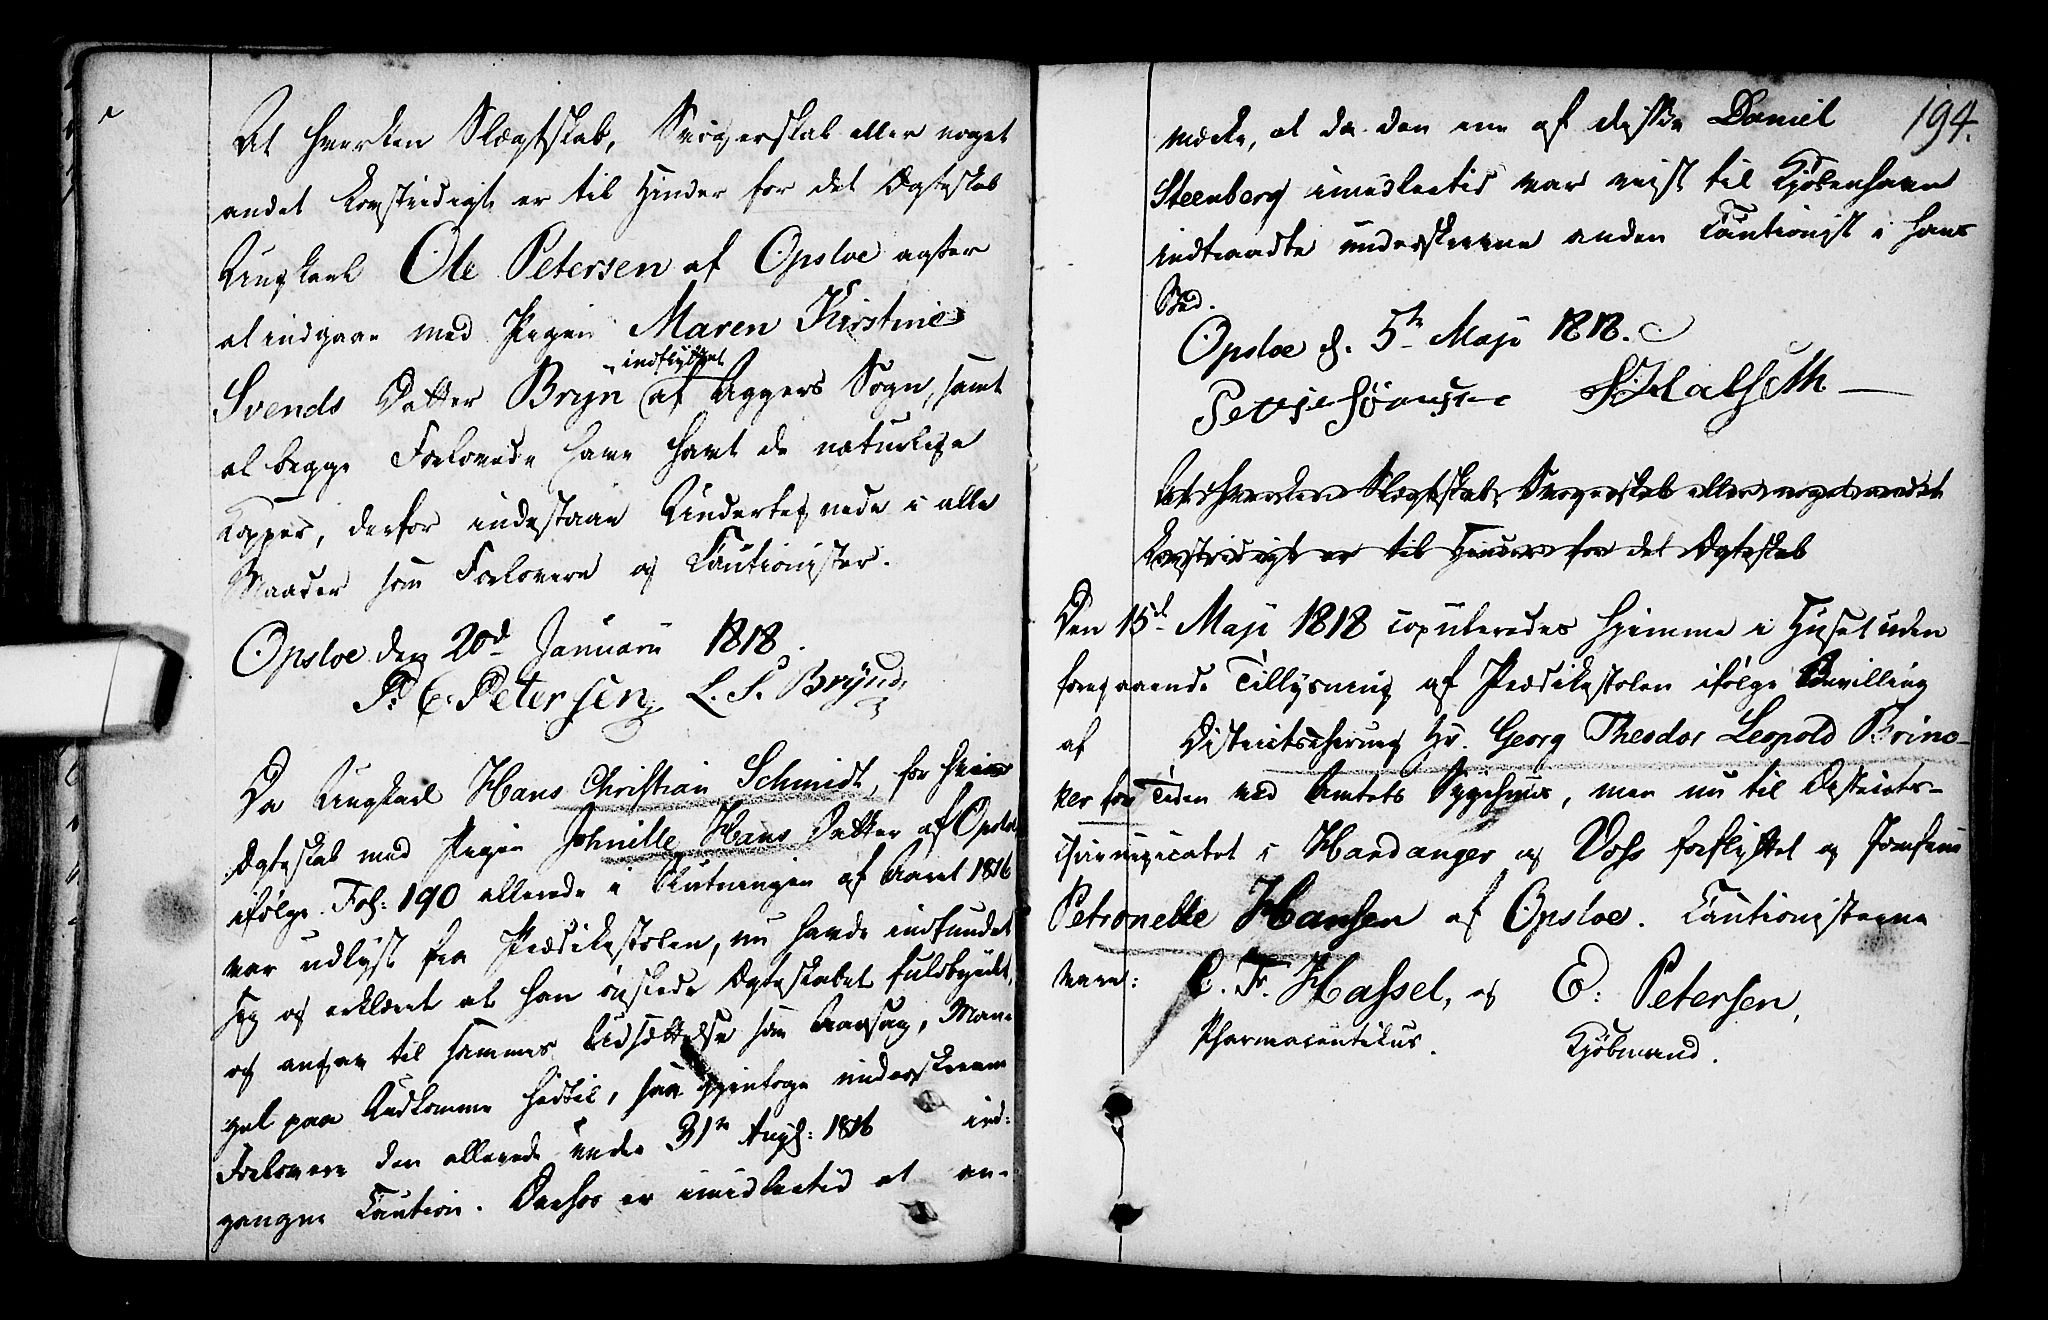 At hverken Slægtskab, Svogerskab eller noget
andet lovstridigt er til Hinder for det Ægteskab
Ungkarl Ole Petersen af Opsloe agter
at indgaae med Pigen Maren Kirstine
indflyttet
Svends Datter Bryn af Aggers Sogn, samt
at begge Forlovede have havt de naturlige
Kopper, derfor indestaae Undertegnede i alle
Maader som Forlovere og Cautionister.
Opsloe den 20d Januarii 1818.
P. C. Petersen L. S. Brynd.
Da Ungkarl Hans Christian Schmidt, for hvis
Ægteskab med Pigen Johnille Hans Datter af Opsloe
ifølge Fol: 190 allerede i Slutningen af Aaret 1816
var udlyst fra Prædikestolen, nu havde indfundet
sig og erklæret at han ønskede Ægteskabet fuldbyrdet,
og angav til sammes Udsættelse som Aarsag, Man-
gel paa Udkomme hidtil, saa igjentoge underskrevne
Forlovere den allerede under 31te Aug: 1816 ind-
gangne Caution. Derhos er imidlertid at an-
194.
mærke, at da den ene af disse Daniel
Steenberg imidlertid var reist til Kjøbenhavn
indtraadte underskrevne anden Cautionist i hans
Sted.
Opsloe d. 5te Maji 1818.
Halseth
At hverken Slægtskab, Svogerskab eller noget andet
lovstridigt er til Hinder for det Ægteskab
Den 15d Maji 1818 copuleredes hjemme i Huset uden
foregaaende Tillysning af Prædikestolen ifølge Bevilling
af Districtschirurg Hr. Georg Theodor Leopold Brinc-
ker for Tiden ved Amtets Sygehuus, men nu til Districts-
chirurgicatet i Hardanger og Voss forflyttet og Jomfrue
Petronelle Hansen af Opsloe. Cautionisterne
vare: C. Fr. Hassel, og E: Petersen,
Pharmaceutikus. Kjøbmand.